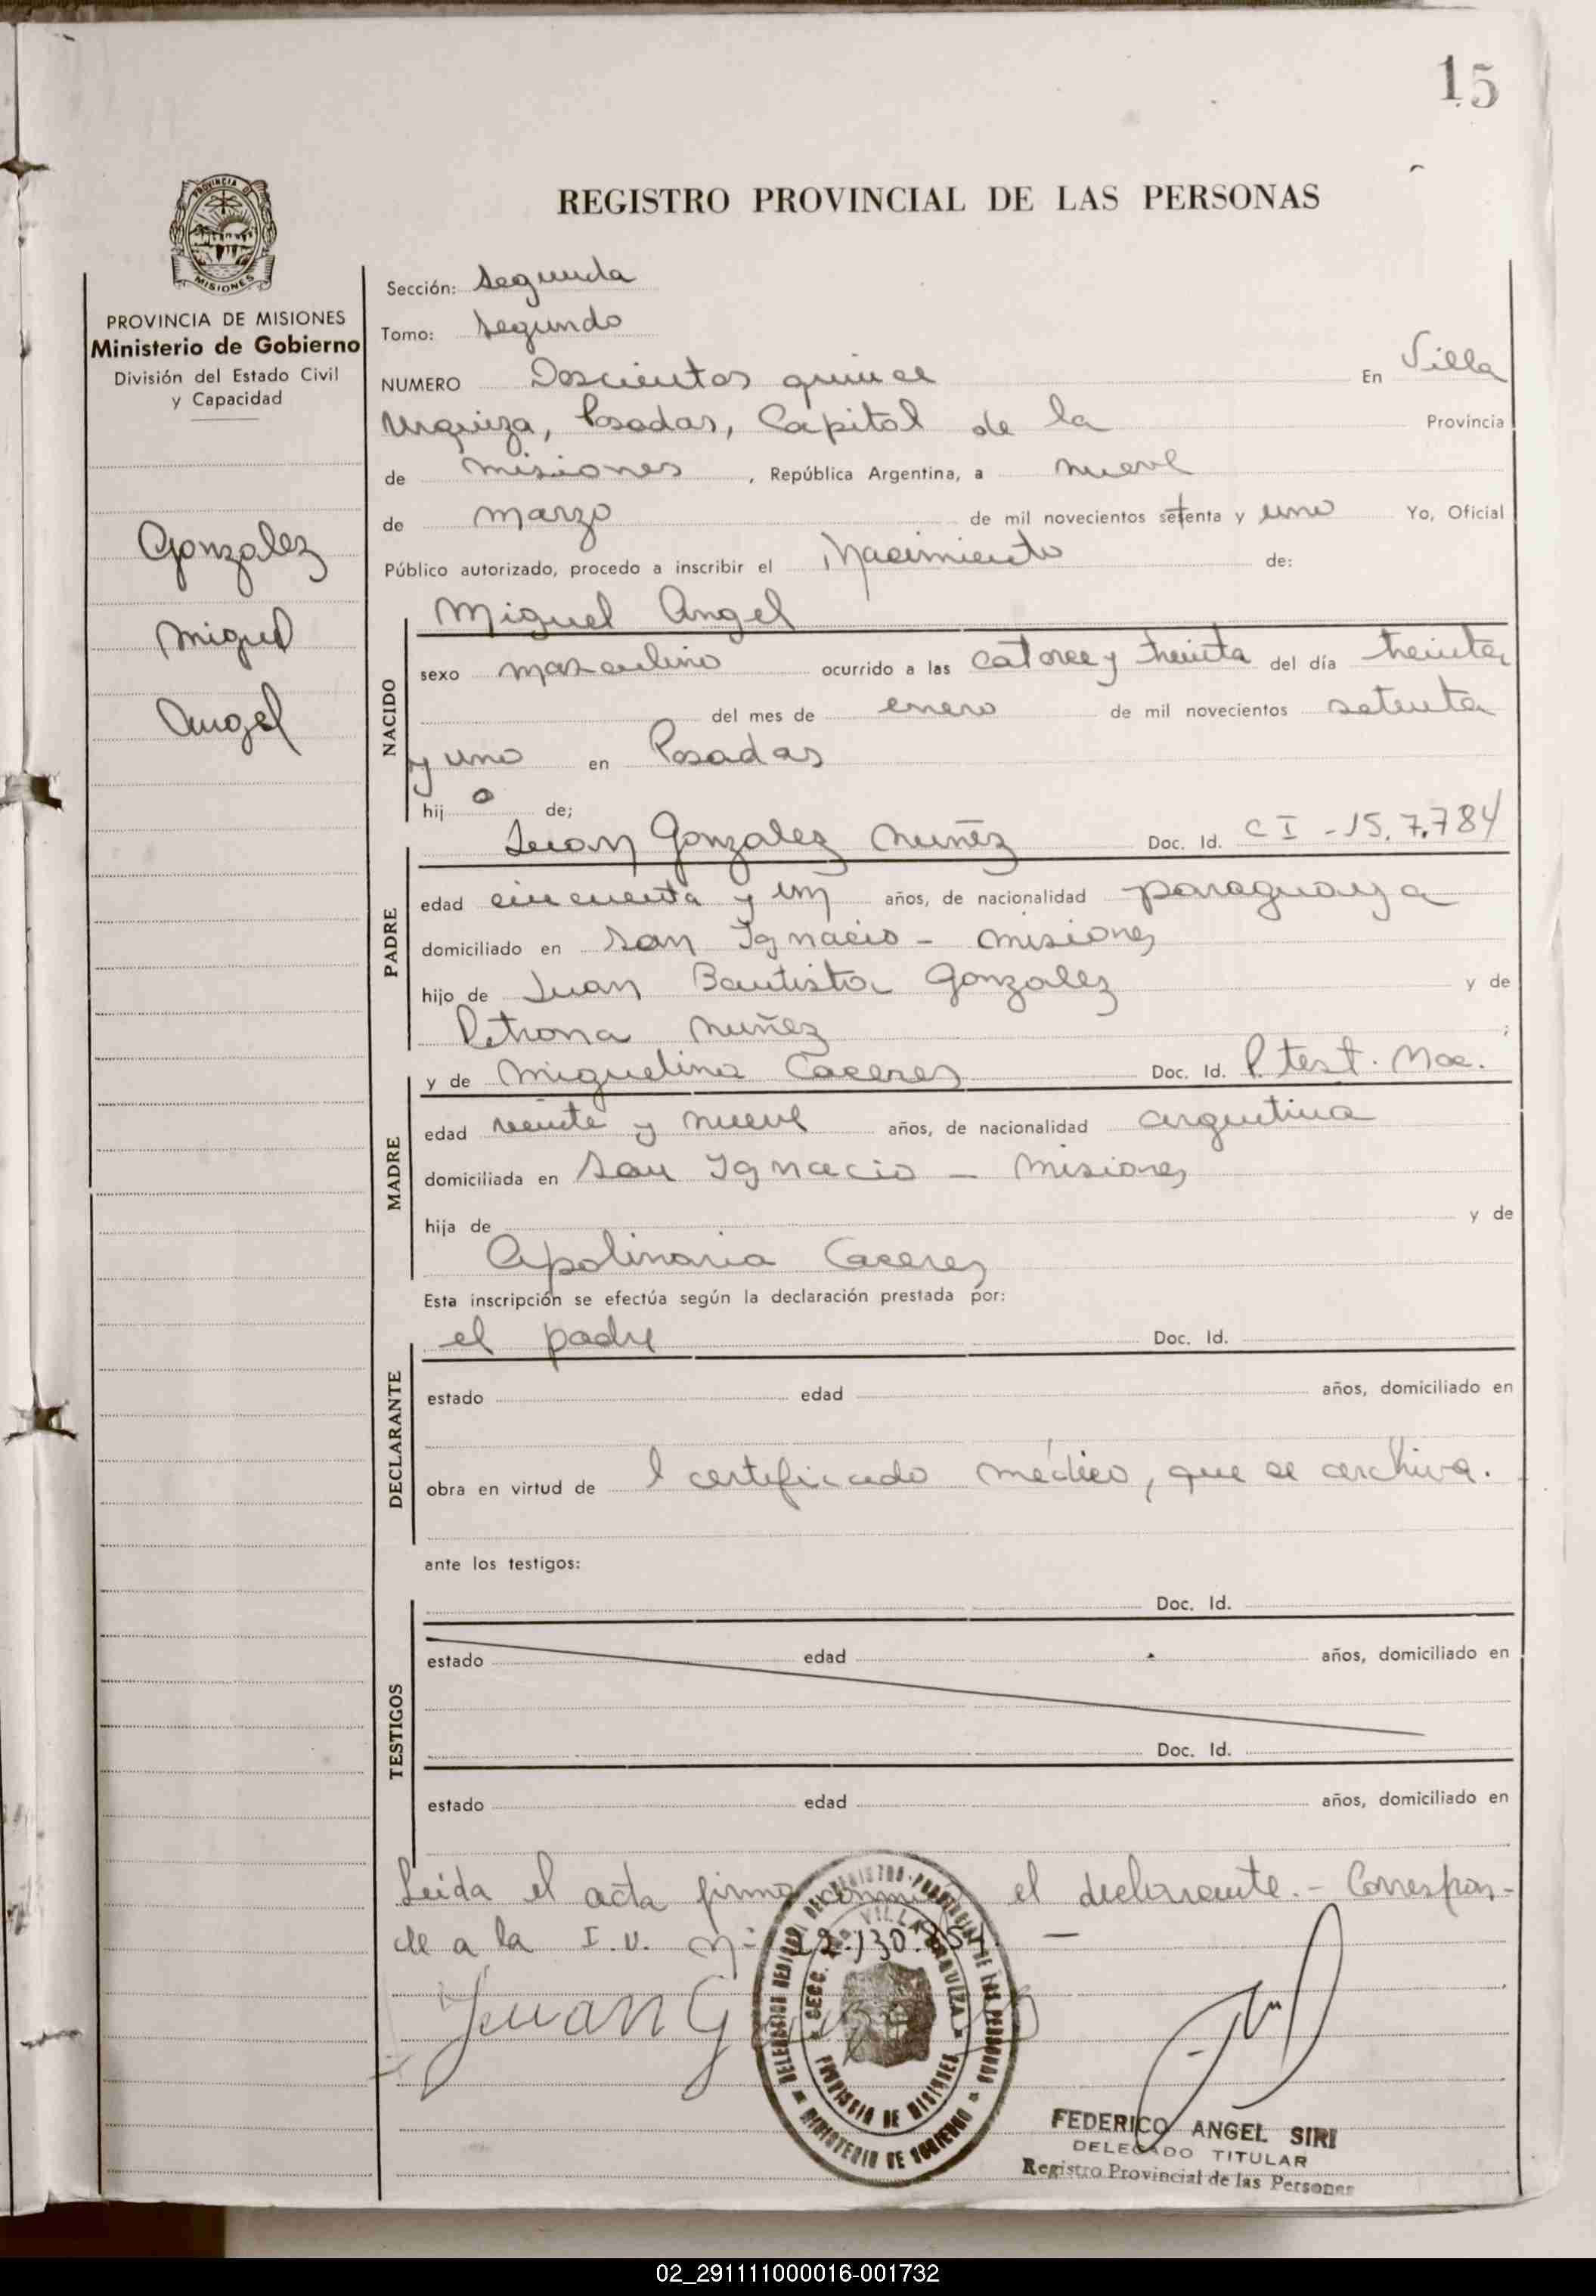 15
PROVINCIA DE
MISIONES
REGISTRO PROVINCIAL DE LAS PERSONAS
PROVINCIA DE MISIONES
Ministerio de Gobierno
División del Estado Civil
y Capacidad
Gonzalez
Miguel
Angel
Sección: Segunda
Tomo: Segundo
NUMERO Doscientos quince En Villa
Urquiza, Posadas, Capital de la Provincia
de Misiones, República Argentina, a nueve
de marzo de mil novecientos setenta y uno Yo, Oficial
Público autorizado, procedo a inscribir el Nacimiento de:
NACIDO
Miguel Angel
sexo masculino ocurrido a las catorce y treinta del día treinta
del mes de enero de mil novecientos setenta
y uno en Posadas
hij o de;
PADRE
Juan Gonzalez Nuñez Doc. Id. C I - 15.7.784
edad cincuenta y un años, de nacionalidad paraguaya
domiciliado en San Ignacio - Misiones
hijo de Juan Bautista Gonzalez y de
Petrona Nuñez ;
MADRE
y de Miguelina Caceres Doc. Id. P. test. Nac.
edad veinte y nueve años, de nacionalidad argentina
domiciliada en San Ignacio - Misiones
hija de y de
Apolinaria Caceres
Esta inscripción se efectúa según la declaración prestada por:
DECLARANTE
el padre Doc. Id.
estado edad años, domiciliado en
obra en virtud de l certificado médico, que se archiva.
ante los testigos:
TESTIGOS
Doc. Id.
estado edad años, domiciliado en
Doc. Id.
estado edad años, domiciliado en
Leida el acta firma conmigo el declarante. - Correspon-
de a la I. U. Nº
Juan G
DEL REGISTRO PROVINCIAL DE LAS PERSONAS
MINISTERIO DE GOBIERNO
SECC. VILLA URQUIZA
PROVINCIA DE MISIONES
FEDERICO ANGEL SIRI
DELEGADO TITULAR
Registro Provincial de las Personas
02_291111000016-001732